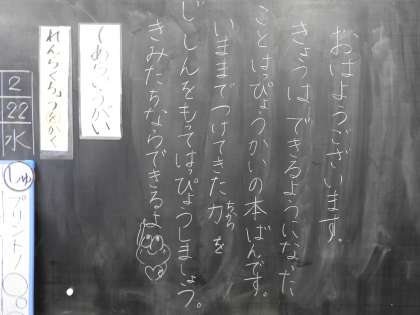 おはようございます。
きょうは、できるようになった
ことはっぴょうかいの本ばんです。
いままでつけてきた力を
ちから
じしんをもってはっぴょうしましょう。
きみたちならできるよ
てあらいうがい
れんらくちょうをかく
2
22
水
1しゅ
プリント